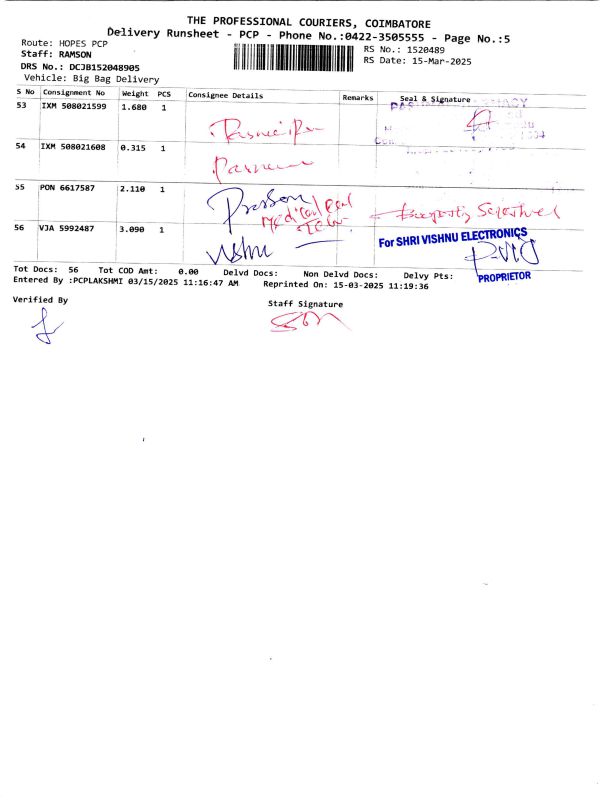 THE PROFESSIONAL COURIERS, COIMBATORE
Delivery Runsheet - PCP - Phone No.:0422-3505555 - Page No.:5
Route: HOPES PCP
RS No.: 1520489
Staff: RAMSON
RS Date: 15-Mar-2025
DRS No.: DCJB152048905
Vehicle: Big Bag Delivery
S No Consignment No Weight PCS Consignee Details Remarks Seal & Signature
53 IXM 508021599 1.680 1
54 IXM 508021608 0.315 1
55 PON 6617587 2.110 1
Medical
56 VJA 5992487 3.090 1
Vishnu
For SHRI VISHNU ELECTRONICS
PROPRIETOR
Tot Docs: 56 Tot COD Amt: 0.00 Delvd Docs: Non Delvd Docs: Delvy Pts:
Entered By :PCPLAKSHMI 03/15/2025 11:16:47 AM Reprinted On: 15-03-2025 11:19:36
Verified By
Staff Signature